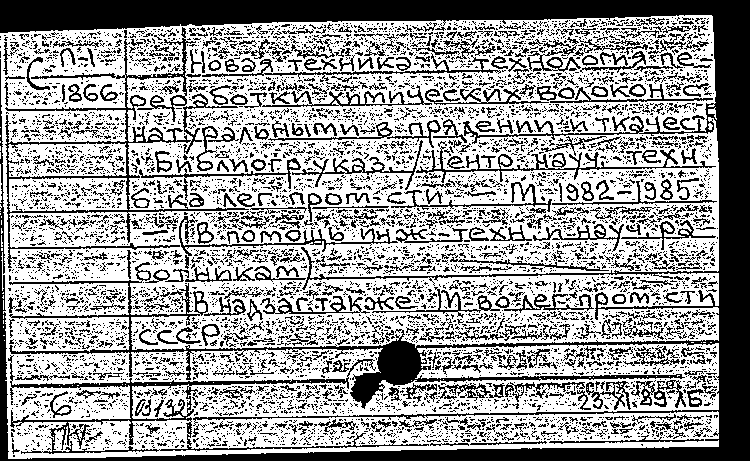 С П-1
1866
Новая техника и технология пе-
реработки химических волокон с
натуральными в прядении и ткачеств
: Библиогр. указ. Центр. науч.-техн.
б-ка лег. пром-сти. — М., 1982-1985
— (В помощь инж.-техн. и науч. ра-
ботникам).
В надзаг. также: М-во лег. пром-сти
СССР.
6 03132 23.XI.89 ЛБ.